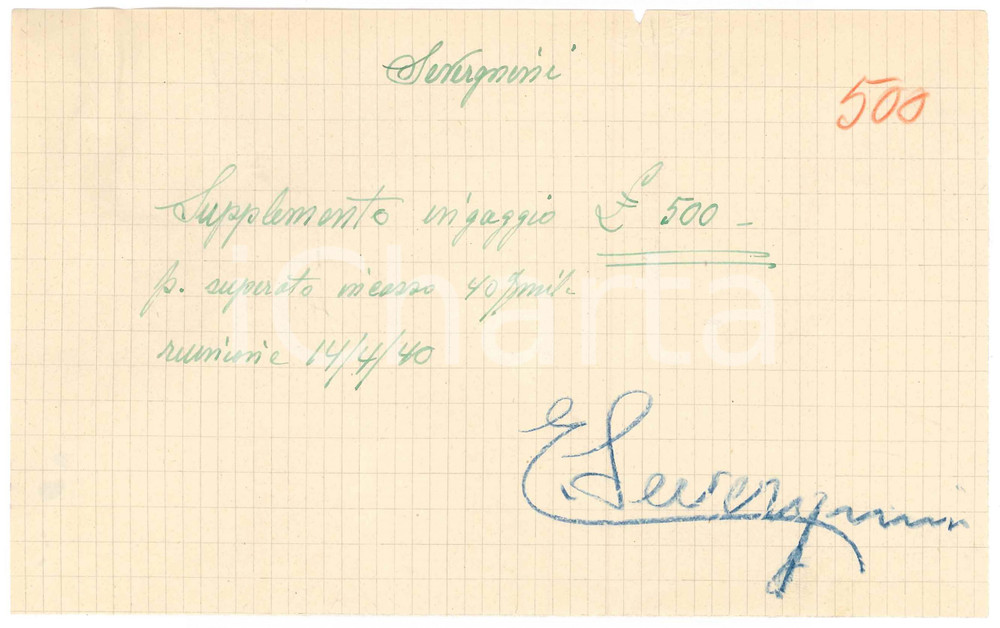 Severgnini
500
Supplemento ingaggio £ 500 -
p. superato incasso 40 mil-
riunione 14/4/40
iCharta
E. Severgnini